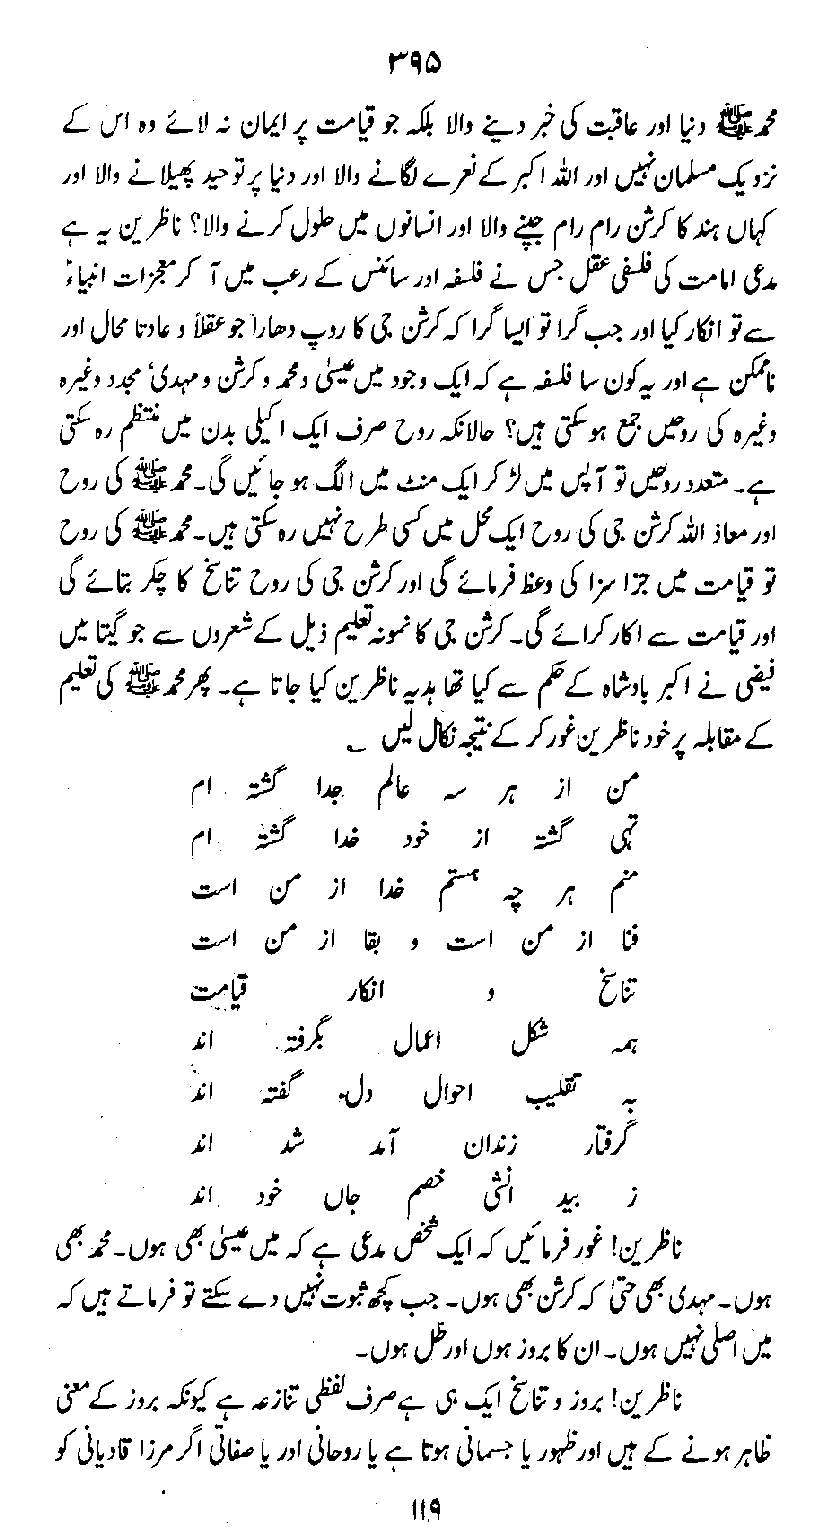 ۳۹۵
محمدﷺ دنیا اور عاقبت کی خبر دینے والا بلکہ جو قیامت پر ایمان نہ لائے وہ اس کے
نزدیک مسلمان نہیں اور اللہ اکبر کے نعرے لگانے والا اور دنیا پر توحید پھیلانے والا اور
کہاں ہند کا کرشن رام رام جپنے والا اور انسانوں میں حلول کرنے والا؟ ناظرین یہ ہے
مدعی امامت کی فلسفی عقل جس نے فلسفہ اور سائنس کے رعب میں آ کر معجزات انبیاءؑ
سے تو انکار کیا اور جب گرا تو ایسا گرا کہ کرشن جی کا روپ دھارا جو عقلاً و عادتا محال اور
ناممکن ہے اور یہ کون سا فلسفہ ہے کہ ایک وجود میں عیسیٰ و محمد و کرشن و مہدی، مجدد وغیرہ
وغیرہ کی روحیں جمع ہو سکتی ہیں؟ حالانکہ روح صرف ایک اکیلی بدن میں منتظم رہ سکتی
ہے۔ متعدد روحیں تو آپس میں لڑ کر ایک منٹ میں الگ ہو جائیں گی۔ محمدﷺ کی روح
اور معاذ اللہ کرشن جی کی روح ایک محل میں کسی طرح نہیں رہ سکتی ہیں۔ محمدﷺ کی روح
تو قیامت میں جزا سزا کی وعظ فرمائے گی اور کرشن جی کی روح تناسخ کا چکر بتائے گی
اور قیامت سے انکار کرائے گی۔ کرشن جی کا نمونہ تعلیم ذیل کے شعروں سے جو گیتا میں
فیضی نے اکبر بادشاہ کے حکم سے کیا تھا ہدیہ ناظرین کیا جاتا ہے۔ پھر محمدﷺ کی تعلیم
کے مقابلہ پر خود ناظرین غور کر کے نتیجہ نکال لیں ؎
من از ہر سہ عالم جدا گشتہ ام
تہی گشتہ از خود خدا گشتہ ام
منم ہر چہ ہستم خدا از من است
فنا از من است و بقا از من است
تناسخ و انکار قیامت
ہمہ شکل اعمال بگرفتہ اند
بہ تقلیب احوال دل گفتہ اند
گرفتار زندان آمد شد اند
ز بید انشی خصم جاں خود اند
ناظرین! غور فرمائیں کہ ایک شخص مدعی ہے کہ میں عیسیٰ بھی ہوں۔ محمد بھی
ہوں۔ مہدی بھی حتیٰ کہ کرشن بھی ہوں۔ جب کچھ ثبوت نہیں دے سکتے تو فرماتے ہیں کہ
میں اصلی نہیں ہوں۔ ان کا بروز ہوں اور ظل ہوں۔
ناظرین! بروز و تناسخ ایک ہی ہے صرف لفظی تنازعہ ہے کیونکہ بروز کے معنی
ظاہر ہونے کے ہیں اور ظہور یا جسمانی ہوتا ہے یا روحانی اور یا صفاتی اگر مرزا قادیانی کو
۱۱۹